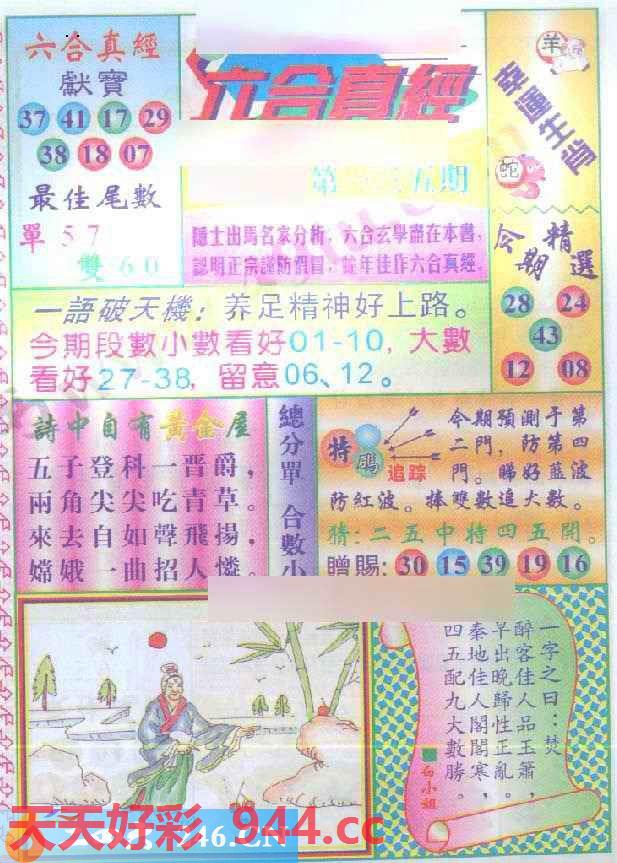 六合真經
獻寶
37 41 17 29
38 18 07
最佳尾數
單 57
雙 60
六合真經
五期
隱士出馬名家分析，六合玄學盡在本書，
認明正宗謹防假冒，蛇年佳作六合真經。
羊
幸運生肖
蛇
今期精選
28 24
43
12 08
一語破天機：养足精神好上路。
今期段數小數看好01-10，大數
看好27-38，留意06、12。
詩中自有黃金屋
五子登科一晋爵，
兩角尖尖吃青草。
來去自如聲飛揚，
嫦娥一曲招人憐。
總分單 合數小
特碼
追踪
今期預測于第
二門，防第四
門。睇好藍波
防紅波。捧雙數追大數。
猜：二五中特四五開。
贈賜：30 15 39 19 16
一字之曰：焚
醉客佳人品玉簫，
早出晚歸性正亂。
秦地佳人閣閣寒，
四五配九大數勝。
白小姐
天天好彩 944.cc
46.CN